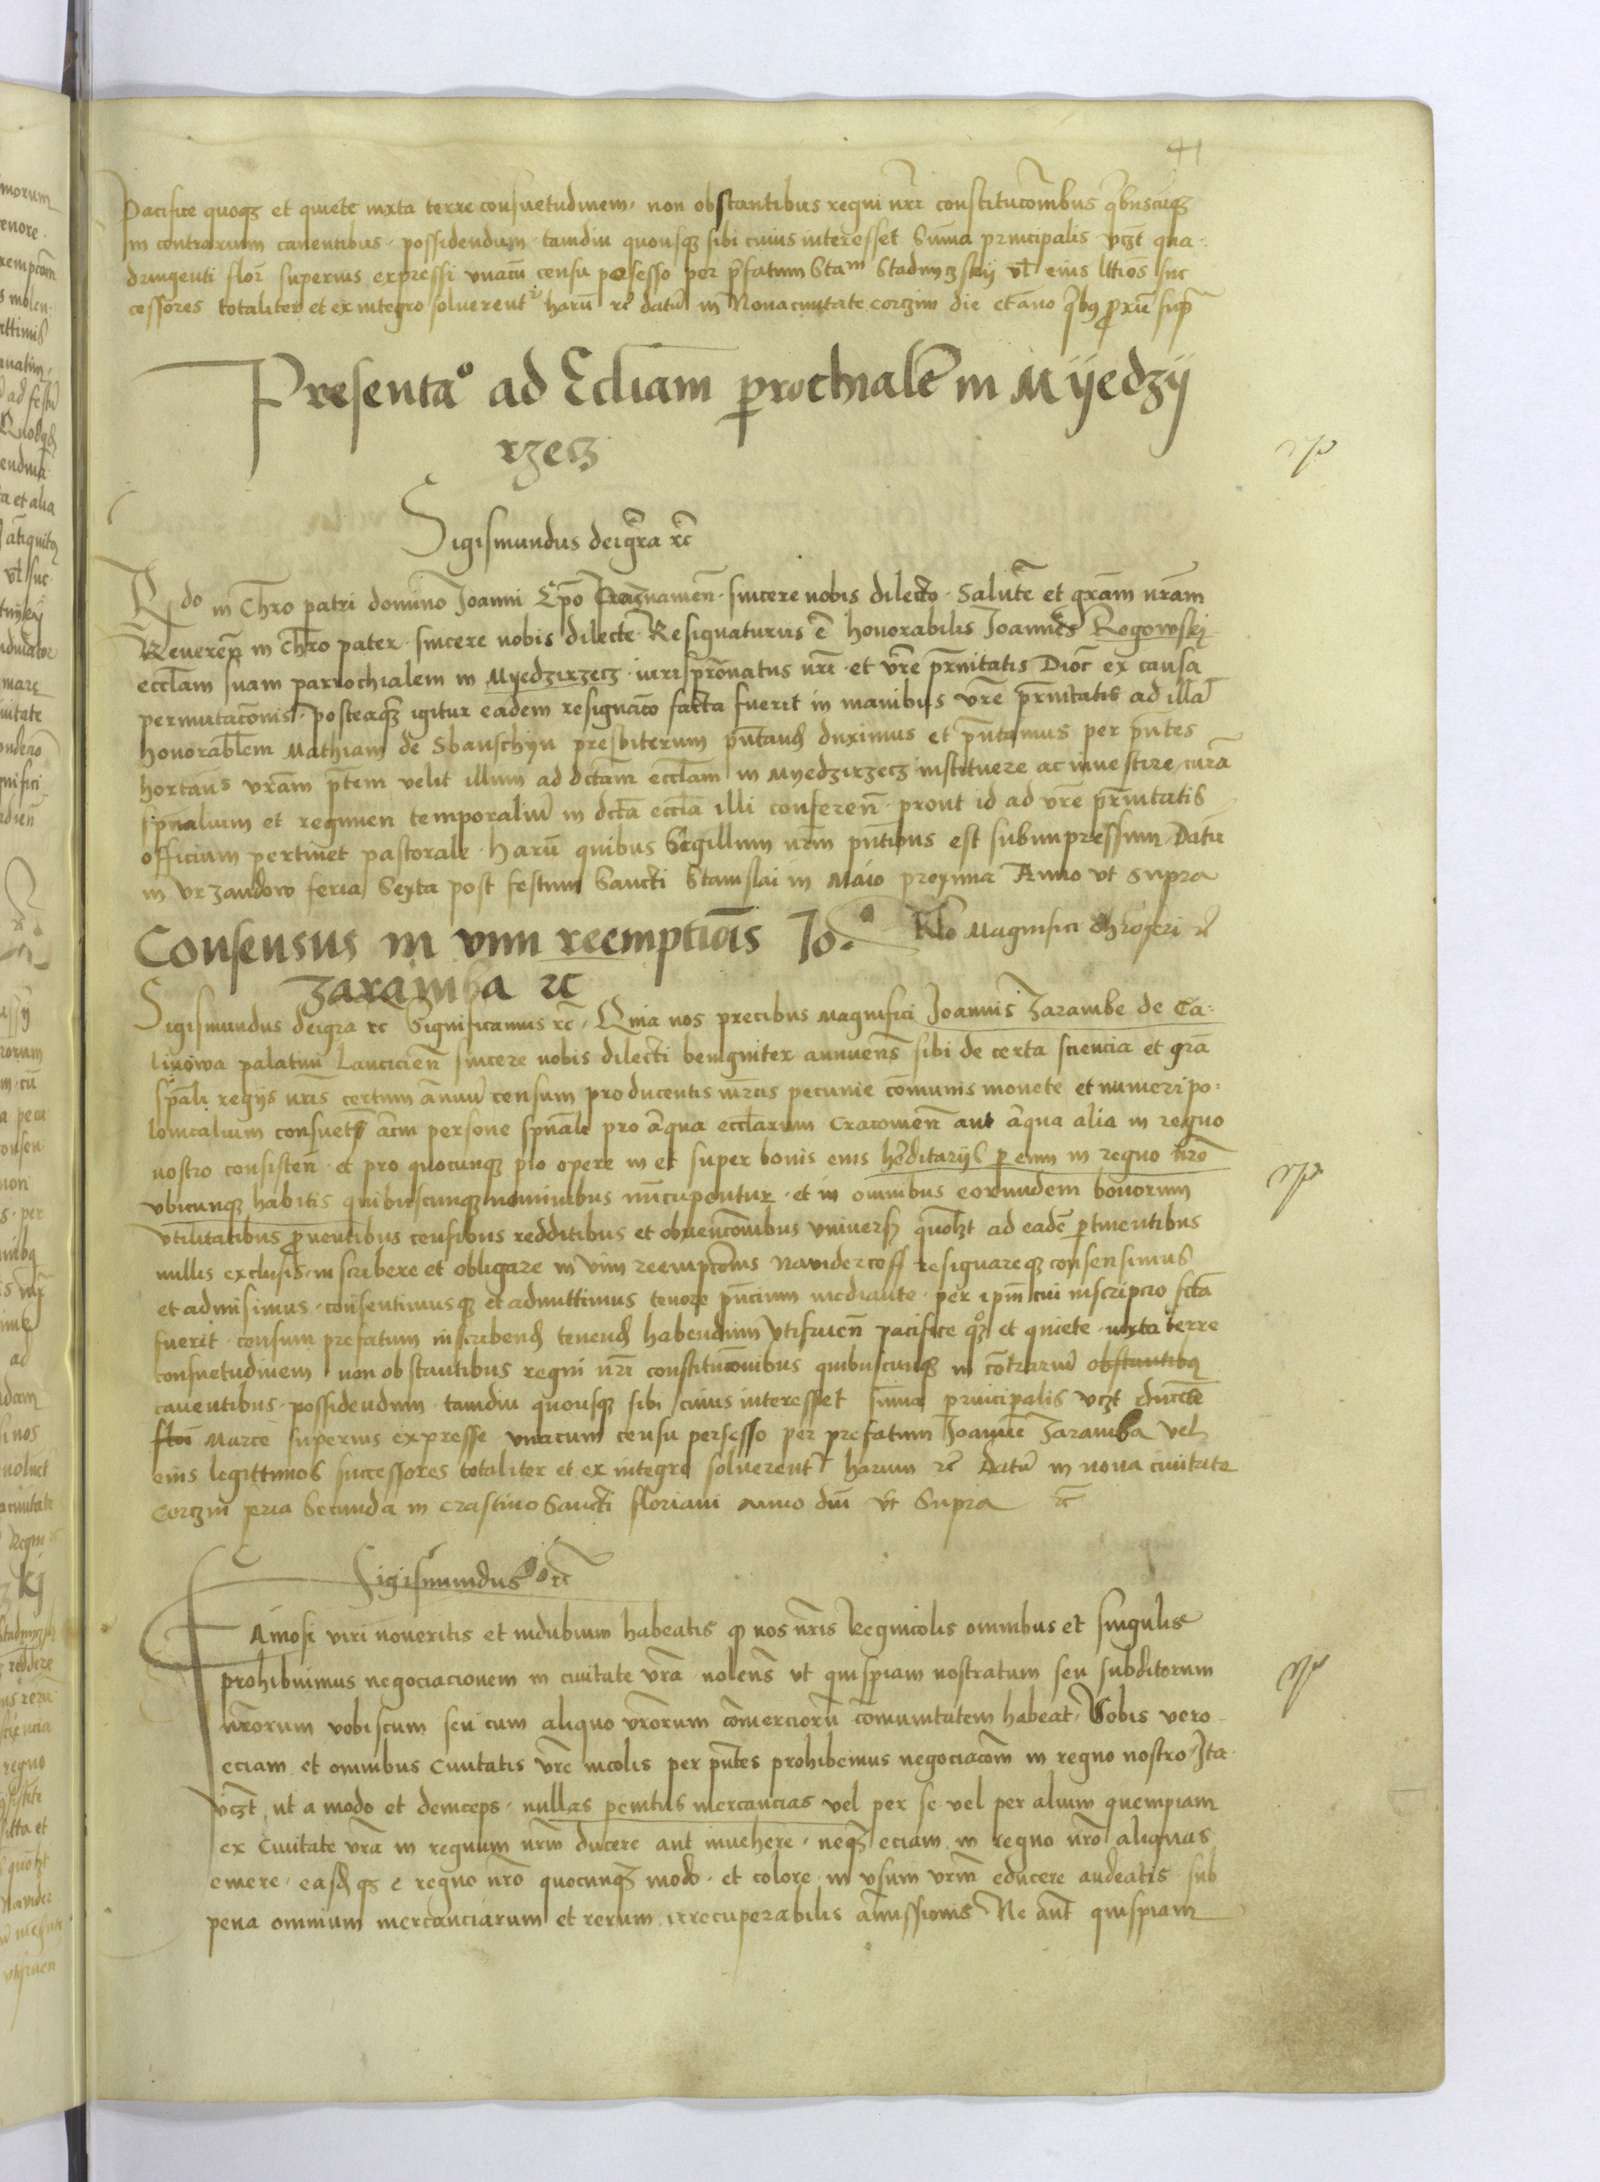 41
Pacifice quoqȝ et quiete iuxta terre consuetudinem, non obstantibus regni nrī constitucōnibus qͥbuscūqȝ
in contrarium cauentibus · possidendum · tamdiu quousqȝ sibi cuius interesset Sūma principalis vcȝt qua-
dringenti florē superius expressi vnacū censu persesso per pͬfatum Staᵐ Stadnyczskij vl̄ eius lttīos suc
cessores totaliter et ex integro soluerentʳ harū rc̄ datū in Nouaciuitate corczin die et anno qͥbꝰ ꝓxīe supͣ
Presentaᵒ ad Eccliam ꝑrochialē in Mijedzij
rzecz
Sigismundus deigͬra rc̄
Rdo in Chrō patri domino Joanni Epō Poznanien̄ · sincere nobis dilecto · Salutē et grām nrām
Reueren̄ in Chrō pater · sincere nobis dilecte · Resignaturus ē honorabilis Joannes Rogowskj
eccl̄am suam parrochialem in Myedzirzecz · iurispr̄onatus nrī · et vr̄e pr̄nitatis Dioc̄ ex causa
permutacōnis · posteaqȝ igitur eadem resignāco facta fuerit in manibus vr̄e pr̄nitatis ad illā
honorabl̄em Mathiam de Sbanschyn presbiterum pn̄tand̄ duximus et pn̄tamus per pn̄tes
hortāns vrām pt̄em velit illum ad dctām eccl̄am in Myedzirzecz instituere ac inuestire, curā
spn̄alium et regimen temporaliū in dctā eccl̄a illi conferen̄ · prout id ad vr̄e pr̄nitatis
officium pertinet pastorale · Harū quibus Sigillum nrm̄ pn̄tibus est subimpressum, Datū
in Vrzandow feria Sexta post festum Sancti Stanislai in Maio proxima Anno vt supra
Rlo Magnifici Chroferi rc̄
Consensus in vim reemptiōis Jo.
Zaramba rc
Sigismundus deigra rc Significamus rc̄, Quia nos precibus Magnifici Joannis Zarambe de Ca-
linowa palatini Lancicien̄ sincere nobis dilecti benigniter annuens sibi de certa sciencia et grā
spāli regijs nrīs certum annuū censum pro ducentis mr̄cis pecunie cōmunis monete et numeri po-
lonicalium consuet alm persone spn̄ale pro aͣqua eccl̄arum Cracouien̄ aut aͣqua alia in regno
nostro consisten̄ · et pro quocunqȝ pio opere in et super bonis eius hereditarijs ꝑ eum in regno nrō
vbicunqȝ habitis quibuscunqȝ nominibus nūcupentur · et in omnibus eorundem bonorum
vtilitatibus ꝓuentibus censibus redditibus et obuencōnibus vniuers̄ quolzt ad eadē ꝑtinentibus
nullis exclusis · inscribere et obligare in vim reempcōnis Naviderkoff resignareqȝ consensimus
et admisimus · consentimusqȝ et admittimus tenore pn̄cium mediante · per ipm̄ cui inscripcio fctā
fuerit · censum prefatum inscribend̄ tenend̄ habendum vtifruen̄ pacifice qȝ et quiete · iuxta terre
consuetudinem non obstantibus regni nrī constitucōnibus quibuscunqȝ in cōtrariū obstantibꝰ
cauentibus · possidendum · tamdiu quousqȝ sibi cuius interesset sūma principalis vcȝt ducētē
flōi Marce superius expresse vnacum censu persesso per prefatum Joannē Zaramba vel
eius legittimos successores totaliter et ex integro soluerentʳ harum rc̄ Datū in noua ciuitate
Corczin feria Secunda in crastino Sancti floriani anno dnī vt Supra rc̄
Sigismundus rc̄
Famosi viri noueritis et indubium habeatis ꝙ nos nrīs Regnicolis omnibus et singulis
prohibuimus negociacionem in ciuitate vrā nolens vt quispiam nostratum seu subditorum
nrōrum vobiscum seu cum aliquo vrōrum cōmerciorū cōmunitatem habeat, Vobis vero
eciam et omnibus Ciuitatis vr̄e incolis per pn̄tes prohibemus negociacōm in regno nostro, Ita
vcȝt, ut a modo et deinceps · nullas penitus mercancias vel per se vel per alium quempiam
ex Ciuitate vrā in regnum nrm̄ ducere aut inuehere · neqȝ eciam in regno nrō aliquas
emere · easd̄ qȝ e regno nrō quocunqȝ modo · et colore · in vsum vrm̄ educere audeatis · sub
pena omnium mercanciarum et rerum irrecuperabilis amissionis Ne aut̄ quispiam